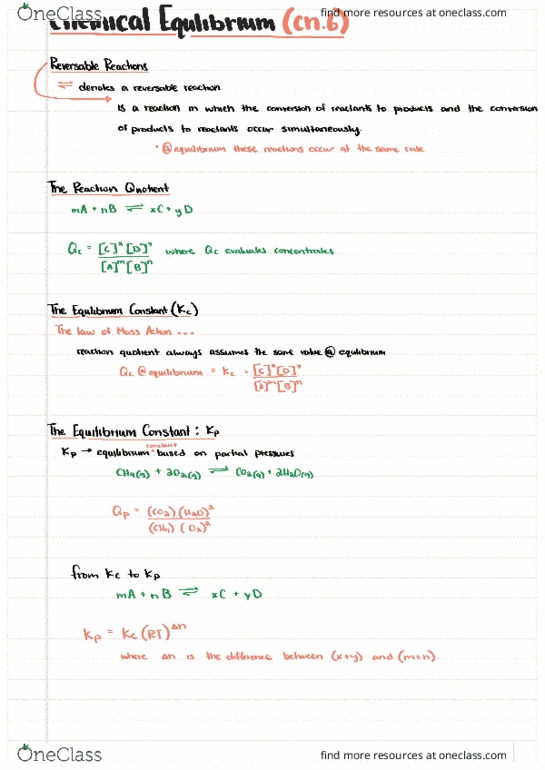 OneClass find more resources at oneclass.com
Chemical Equilibrium (ch.6)
Reversable Reactions
⇌ denotes a reversable reaction
is a reaction in which the conversion of reactants to products and the conversion
of products to reactants occur simultaneously.
* @ equilibrium these reactions occur at the same rate
The Reaction Quotient
mA + nB ⇌ xC + yD
Qc = [C]ˣ[D]ʸ where Qc evaluates concentrates
[A]ᵐ[B]ⁿ
The Equilibrium Constant (Kc)
The law of Mass Action...
reaction quotient always assumes the same value @ equilibrium
Qc @ equilibrium = Kc = [C]ˣ[D]ʸ
[A]ᵐ[B]ⁿ
The Equilibrium Constant: Kp
constant
Kp → equilibrium ^ based on partial pressures
CH₄(g) + 2O₂(g) ⇌ CO₂(g) + 2H₂O(g)
Qp = (CO₂)(H₂O)²
(CH₄)(O₂)²
from Kc to Kp
mA + nB ⇌ xC + yD
Kp = Kc (RT)^Δn
where Δn is the difference between (x+y) and (m+n)
OneClass find more resources at oneclass.com